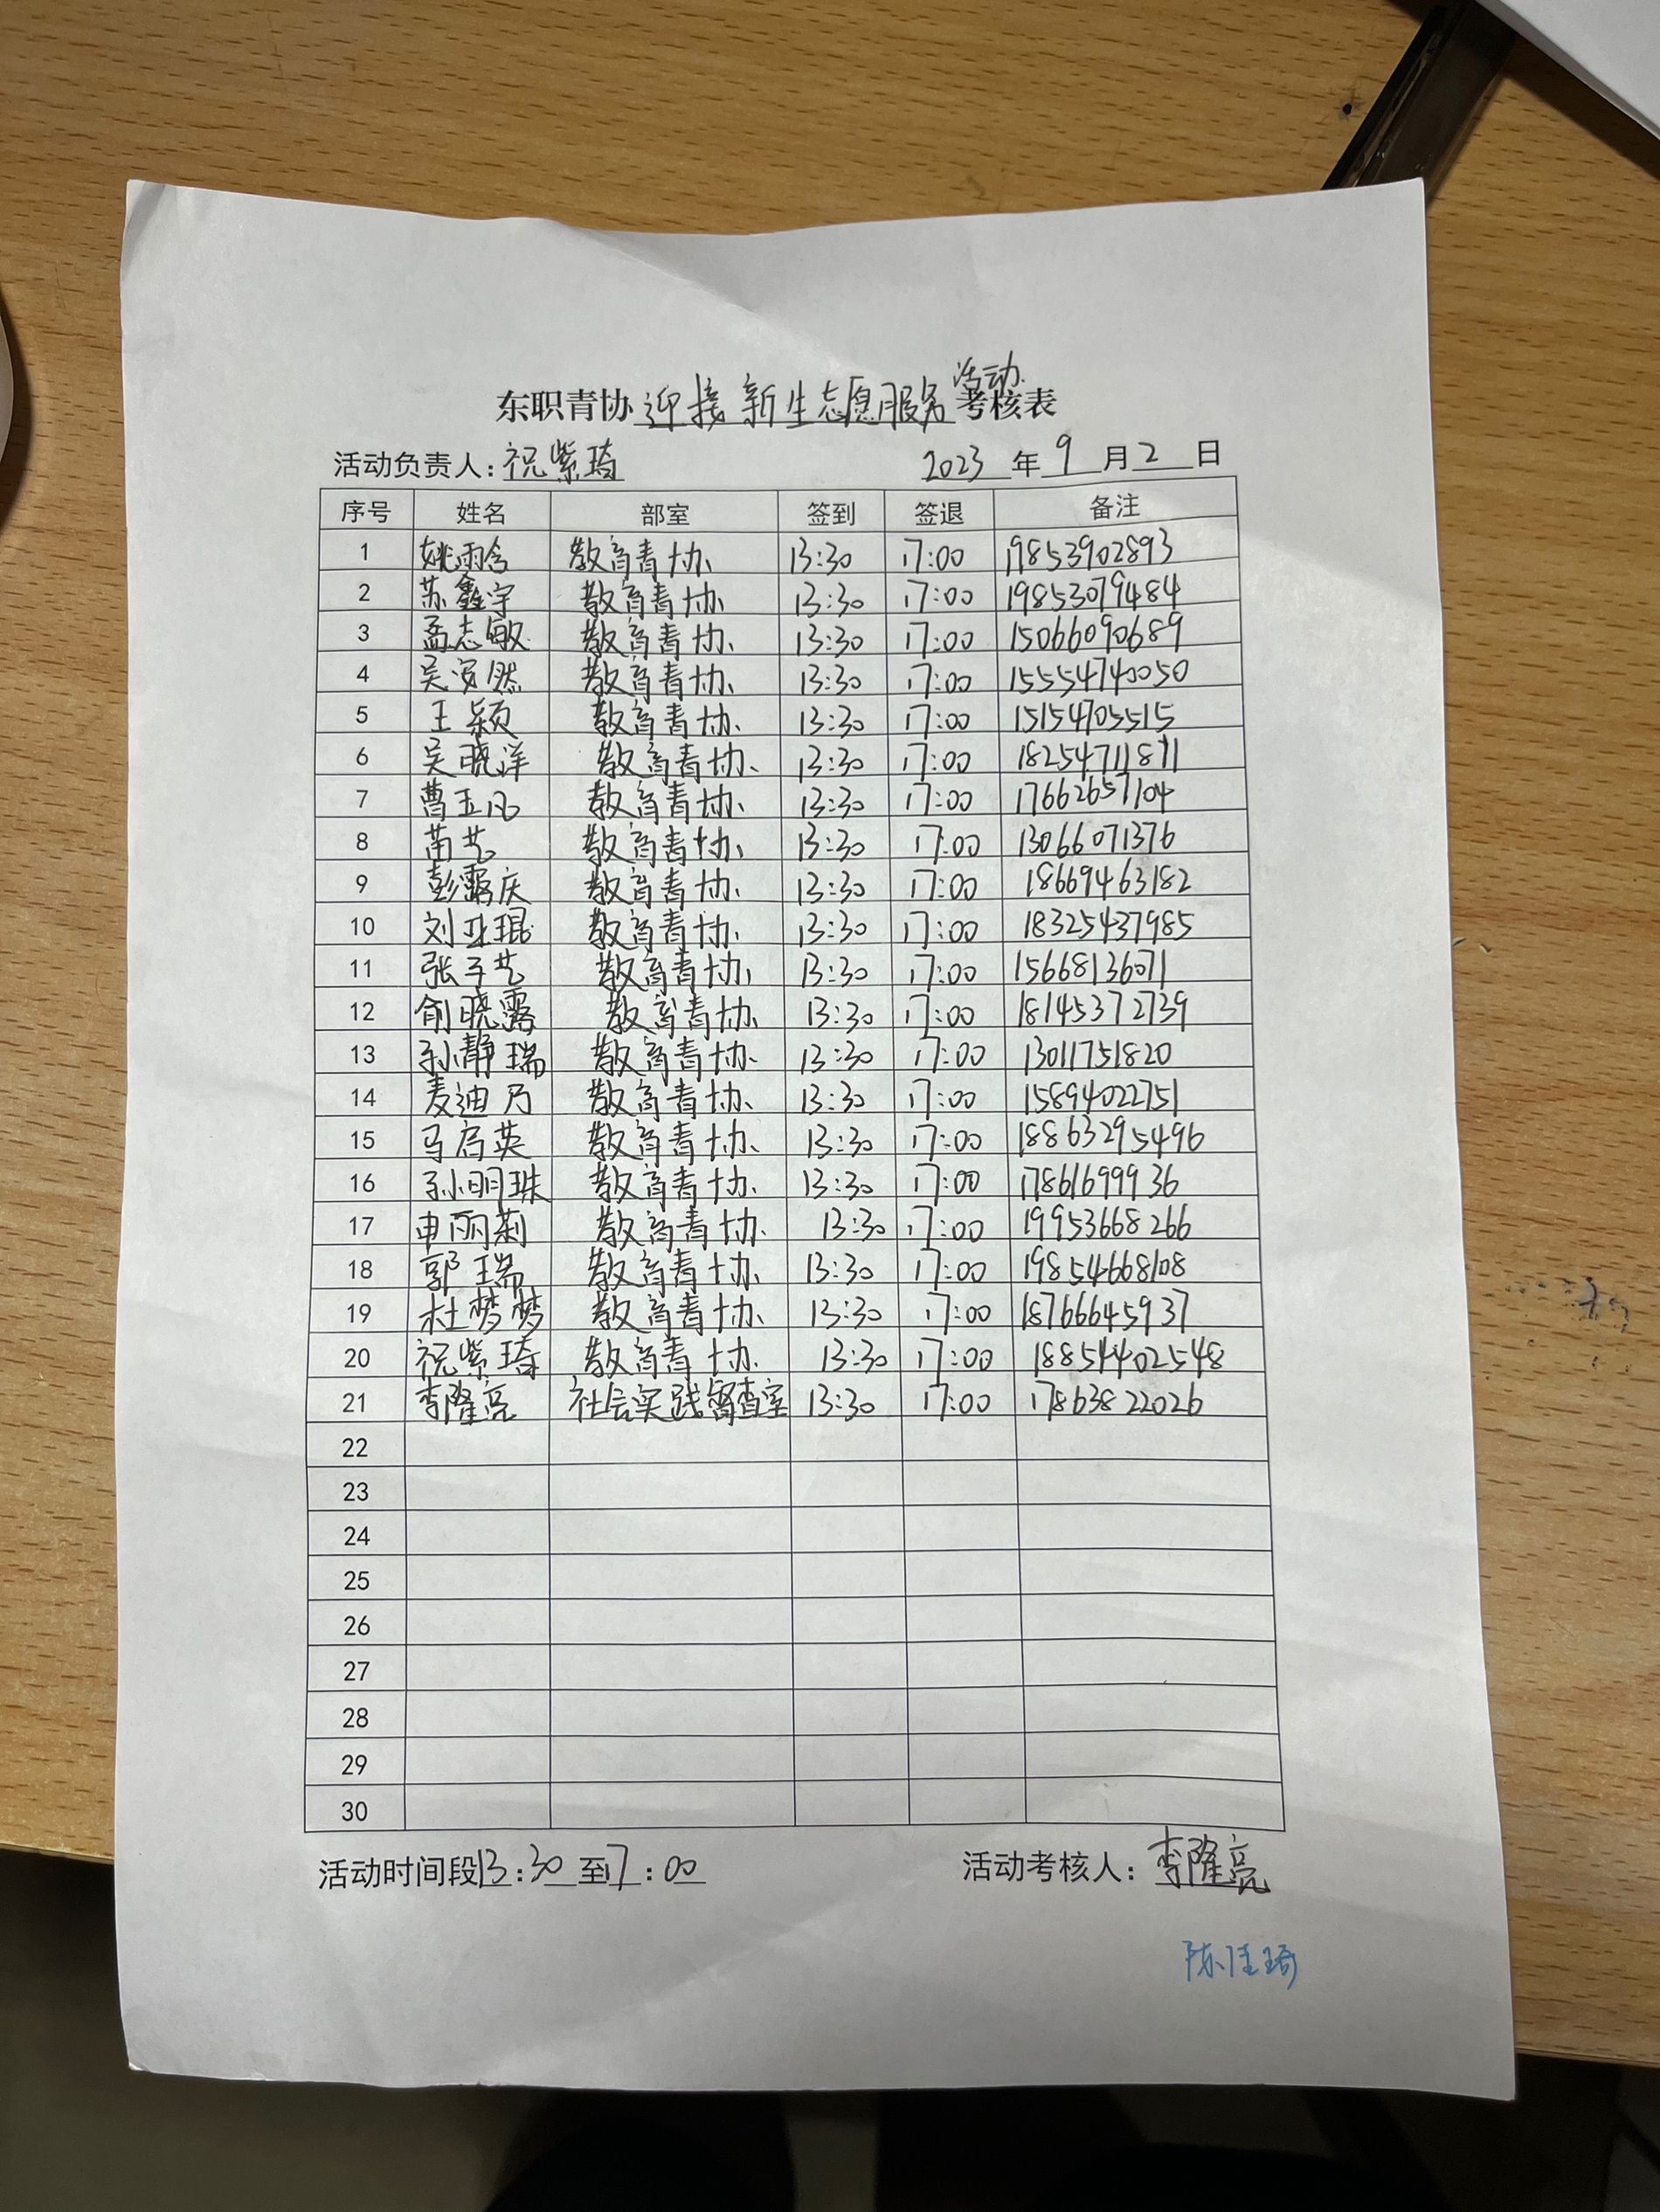 活动
东职青协迎接新生志愿服务考核表
活动负责人：祝紫琦 2023 年 9 月 2 日
序号 姓名 部室 签到 签退 备注
1 姚雨含 教育青协 13:30 17:00 19853902893
2 苏鑫宇 教育青协 13:30 17:00 19853079484
3 孟志敏 教育青协 13:30 17:00 15066090689
4 吴安然 教育青协 13:30 17:00 15554740050
5 王颖 教育青协 13:30 17:00 15154705515
6 吴晓洋 教育青协 13:30 17:00 18254711871
7 曹玉凡 教育青协 13:30 17:00 17662657104
8 苗艺 教育青协 13:30 17:00 13066071376
9 彭露庆 教育青协 13:30 17:00 18669463182
10 刘亚琨 教育青协 13:30 17:00 18325437985
11 张子艺 教育青协 13:30 17:00 15668136071
12 俞晓露 教育青协 13:30 17:00 18145372739
13 孙静瑞 教育青协 13:30 17:00 13011751820
14 麦迪乃 教育青协 13:30 17:00 15894022751
15 马启英 教育青协 13:30 17:00 18863295496
16 孙明珠 教育青协 13:30 17:00 17861699936
17 申丽莉 教育青协 13:30 17:00 19953668266
18 郭瑞 教育青协 13:30 17:00 19854668108
19 杜梦梦 教育青协 13:30 17:00 18766645937
20 祝紫琦 教育青协 13:30 17:00 18854402548
21 李隆亮 社会实践督查室 13:30 17:00 17863822026
22
23
24
25
26
27
28
29
30
活动时间段13:30至17:00 活动考核人：李隆亮
陈佳琦